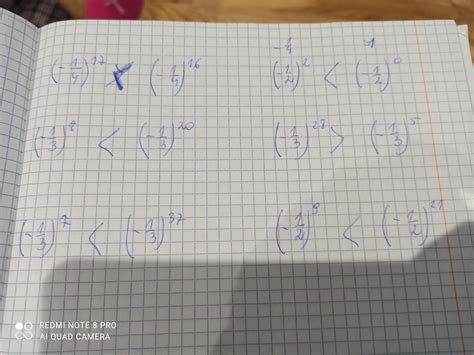 -1/4 -1
(-1/4)^17 < (-1/4)^16 (-1/2)^2 < (-1/2)^0
(-1/3)^8 < (-1/3)^20 (-1/3)^28 > (-1/3)^5
(-1/3)^7 < (-1/3)^37 (-1/2)^9 < (-1/2)^21
REDMI NOTE 8 PRO
AI QUAD CAMERA